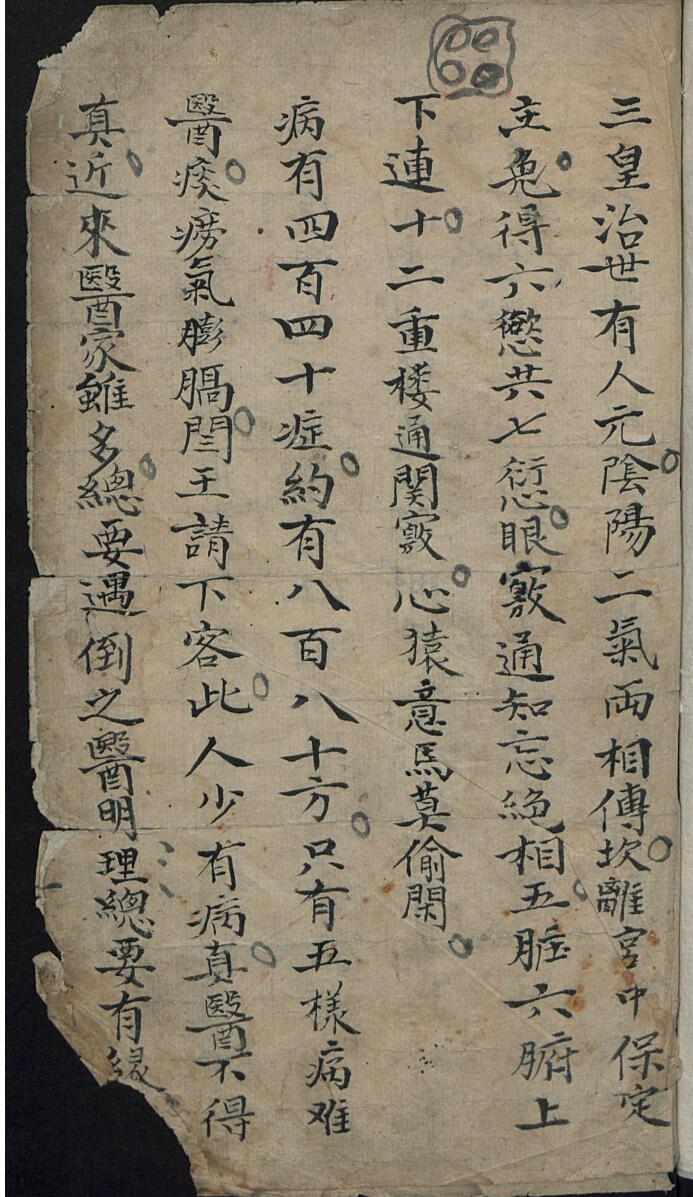 三皇治世有人元陰陽二氣両相傳坎離宮中保定
主兎得六慾共七衍心眼竅通知忘絶相五脏六腑上
下連十二重楼通関竅心猿意馬莫偷閑
病有四百四十症約有八百八十方只有五樣病难
醫痰癆氣膨膈閆王請下客此人少有病真醫不得
真近來醫家雖多總要遇倒之醫明理總要有緣